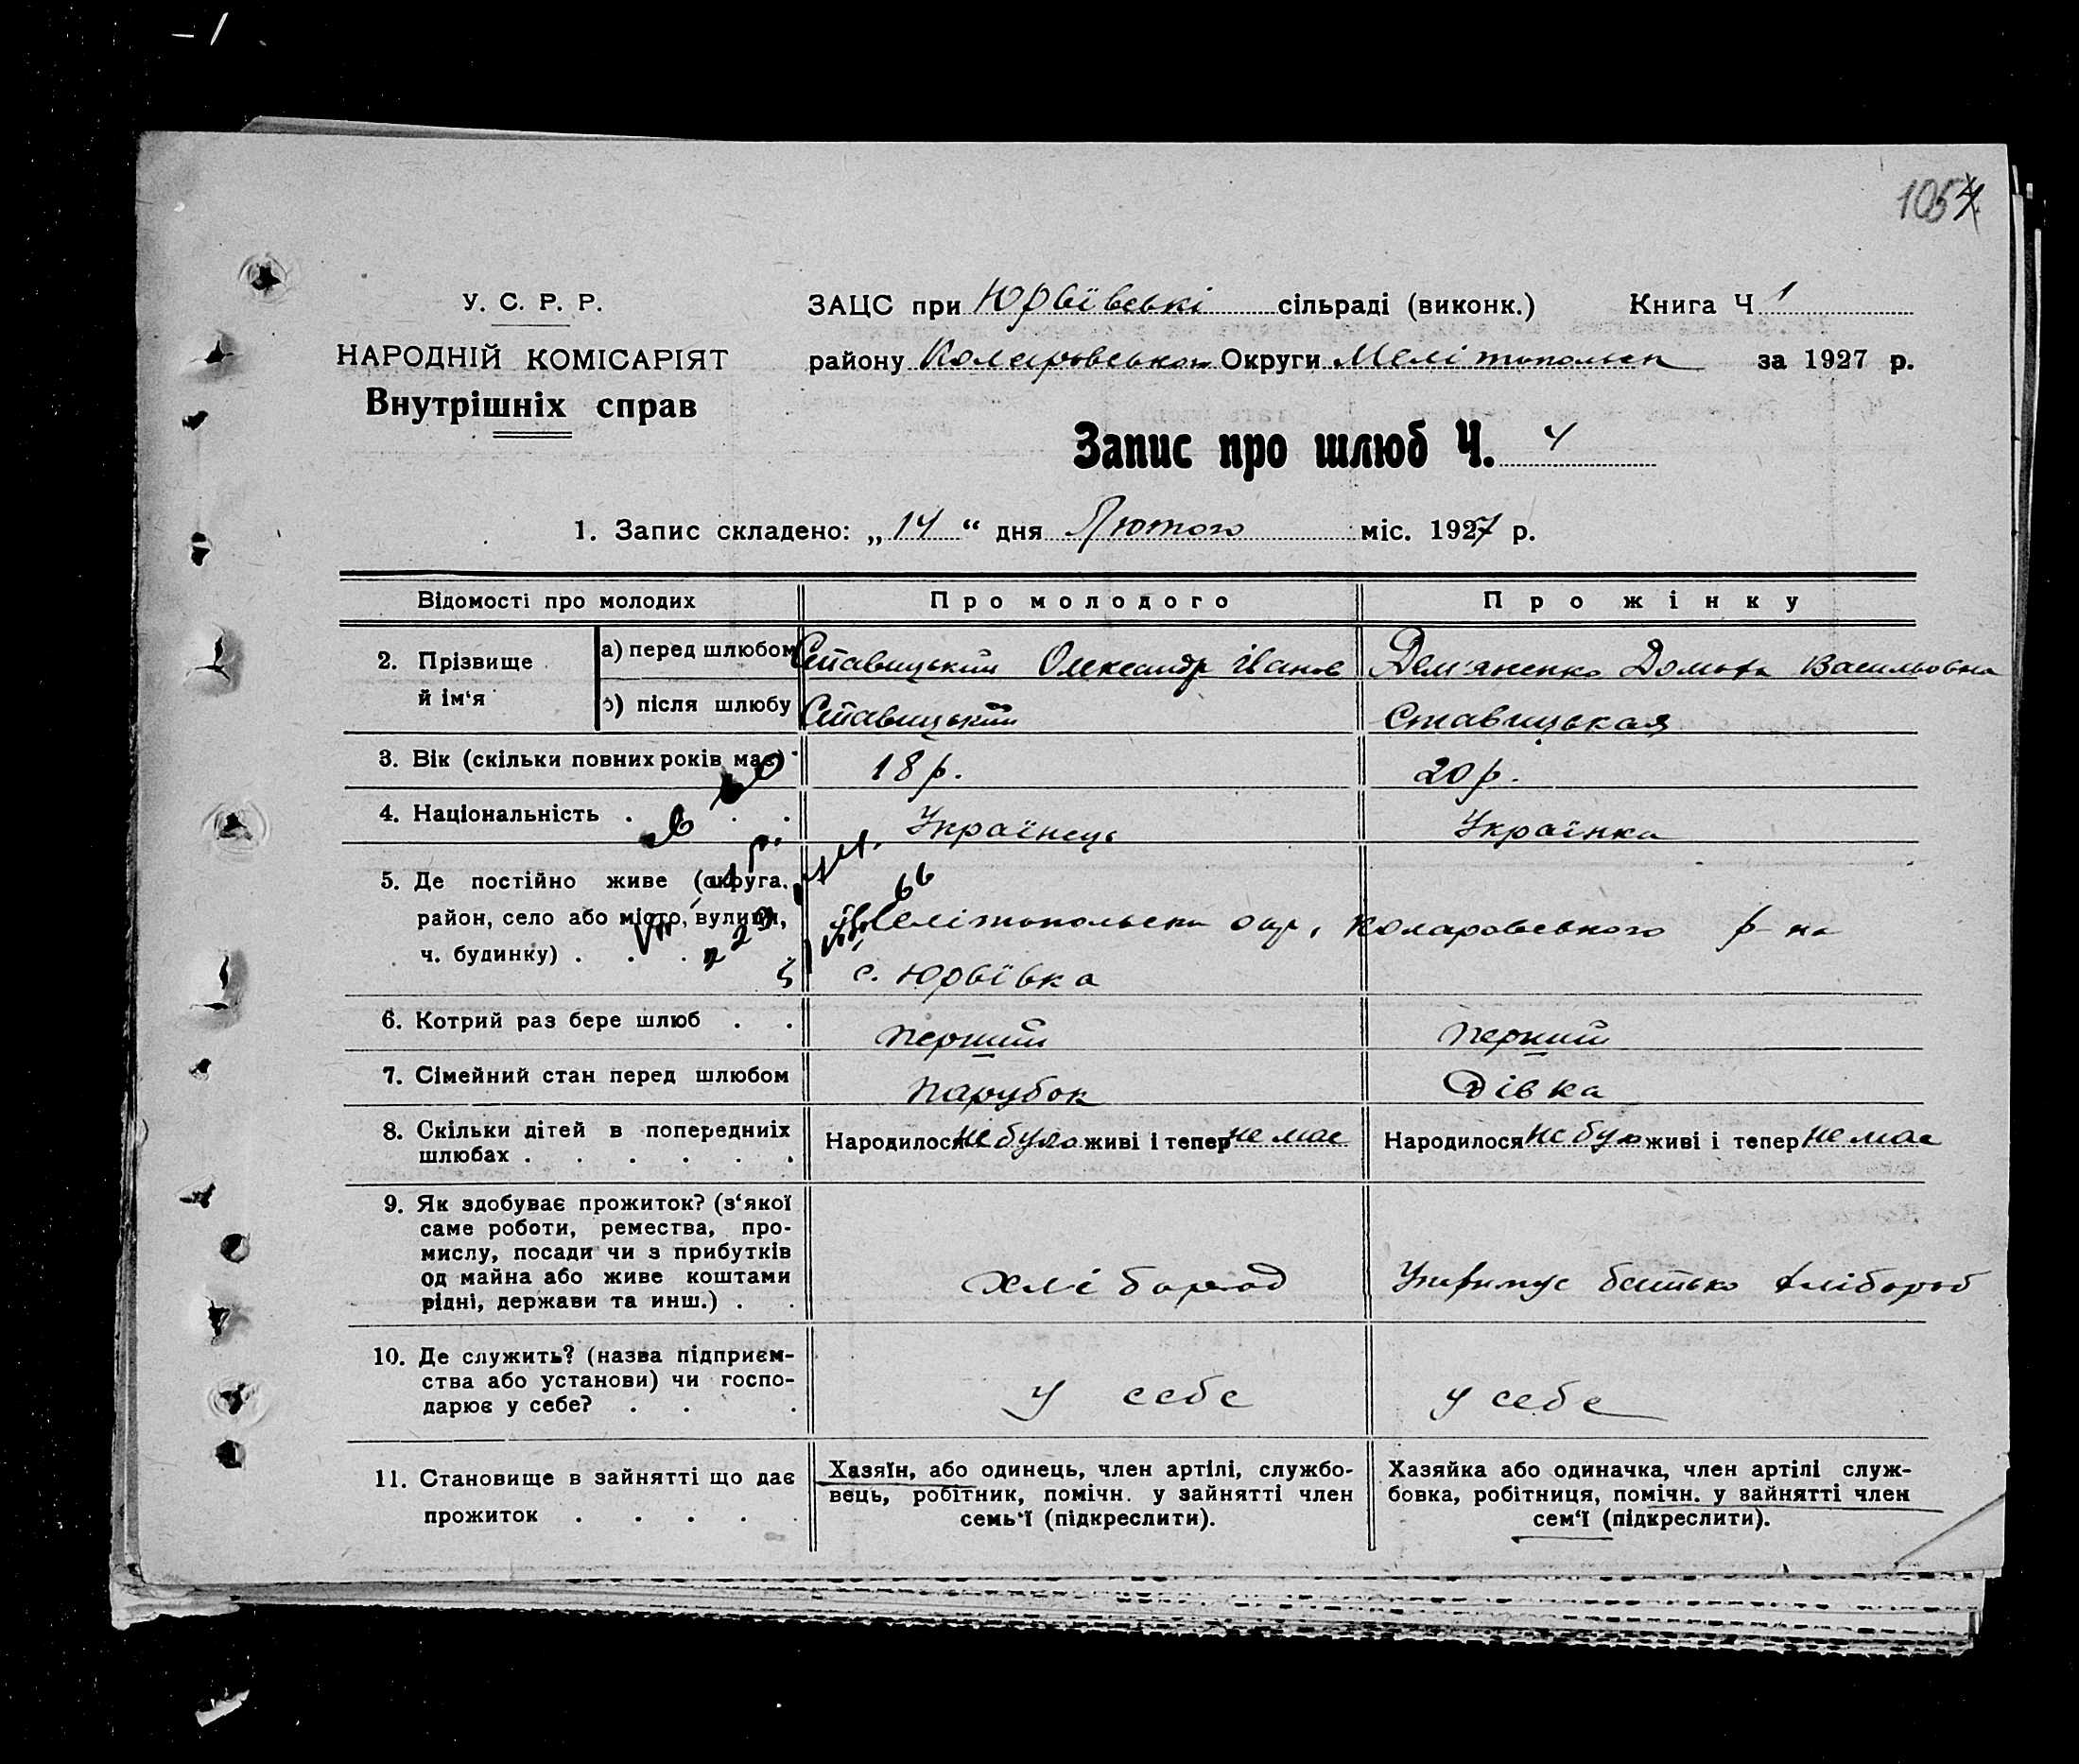 105
У. С. Р. Р.
НАРОДНІЙ КОМІСАРІЯТ
Внутрішніх справ
ЗАЦС при Юрвівські сільраді (виконк.) Книга Ч 1
району Коларовського Округи Мелітопольск за 1927 р.
Запис про шлюб Ч. 4
1. Запис складено: „14“ дня Лютого міс. 1927 р.
Відомості про молодих Про молодого Про жінку
2. Прізвище й ім‘я
а) перед шлюбом Ставицький Олександр Іванов Дем'яненко Домаха Васильовна
б) після шлюбу Ставицький Ставицькая
3. Вік (скільки повних років має) 18 р. 20 р.
4. Національність . . . Українець Українка
5. Де постійно живе (округа,
район, село або місто, вулиця,
ч. будинку) . . .
Мелітопольськ окр, Коларовського р-на
с. Юрвівка
6. Котрий раз бере шлюб . . перший перший
7. Сімейний стан перед шлюбом парубок Дівка
8. Скільки дітей в попередниіх
шлюбах . . . . . .
Народилося не було живі і тепер не має Народилося не було живі і тепер не має
9. Як здобуває прожиток? (з‘якої
саме роботи, ремества, про-
мислу, посади чи з прибутків
од майна або живе коштами
рідні, держави та инш.) . .
хлібороб батько хлібороб
10. Де служить? (назва підприєм-
ства або установи) чи госпо-
дарює у себе? . . .
у себе у себе
11. Становище в зайнятті що дає
прожиток . . . . .
Хазяїн, або одинець, член артілі, службо-
вець, робітник, помічн. у зайнятті член
семь‘ї (підкреслити).
Хазяйка або одиначка, член артілі служ-
бовка, робітниця, помічн. у зайнятті член
сем‘ї (підкреслити).